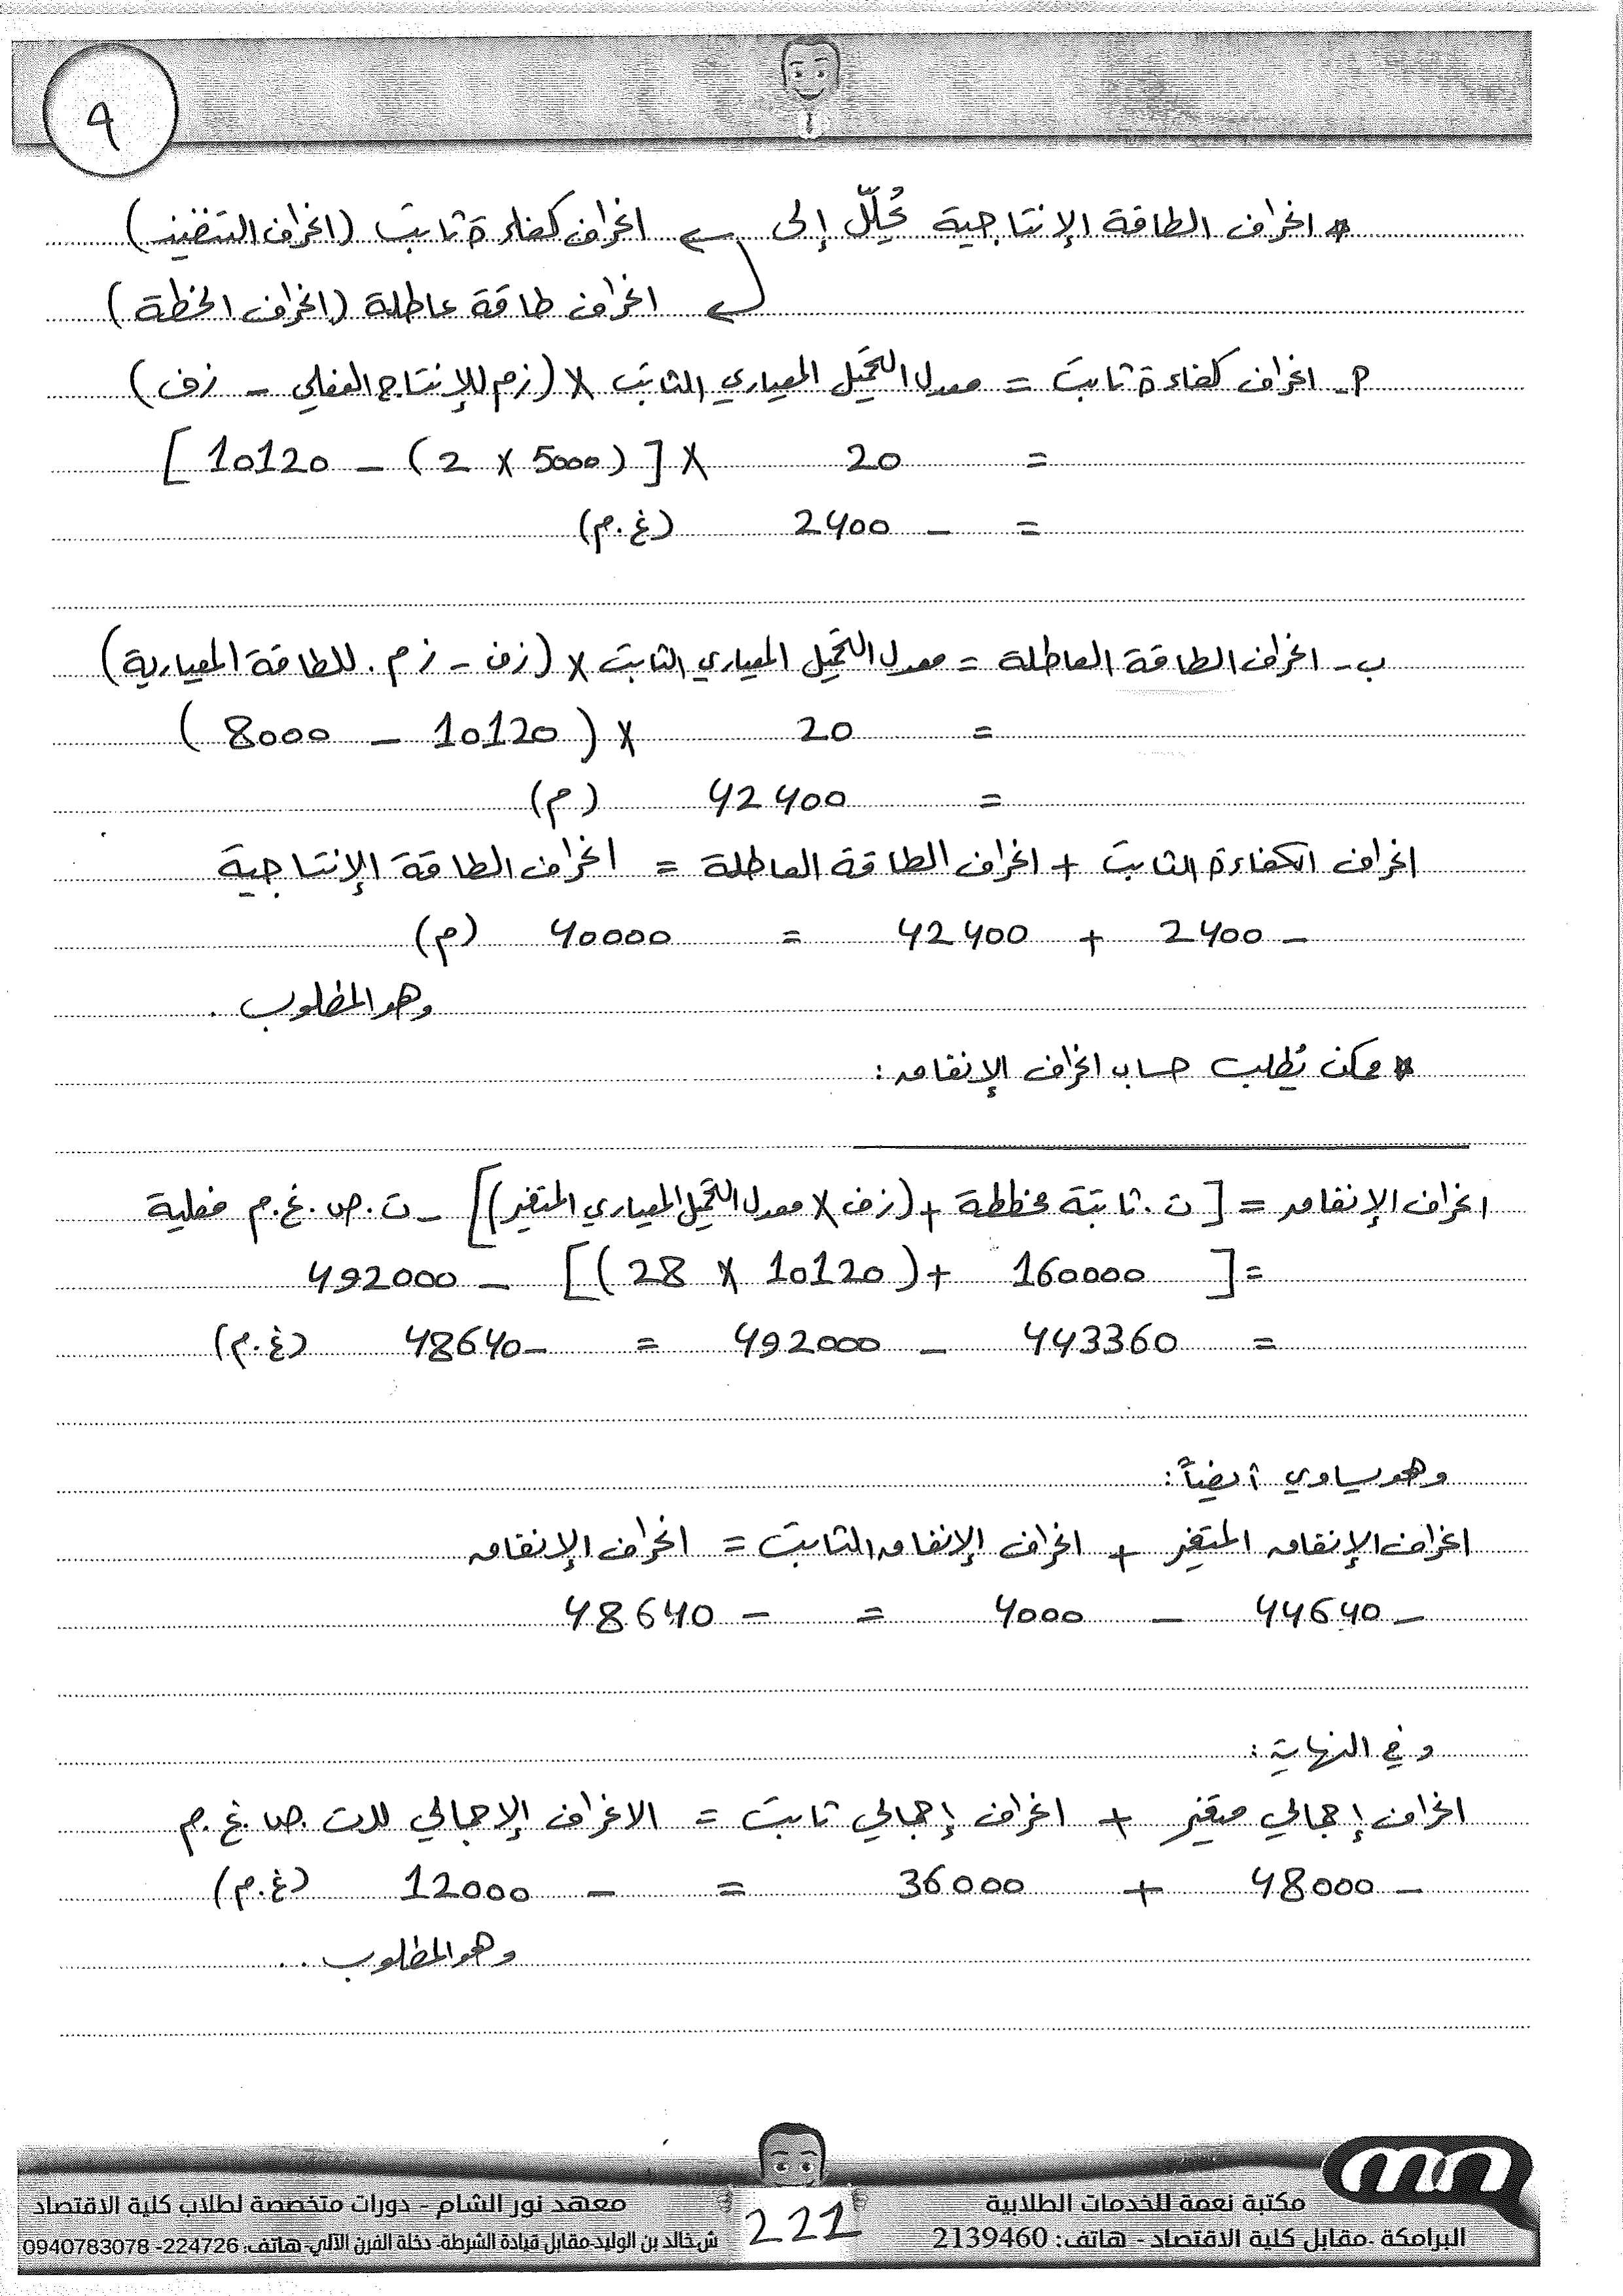 ٩
* انحراف الطاقة الإنتاجية يُحلّل إلى ← انحراف كفاءة ثابت (انحراف التنفيذ)
← انحراف طاقة عاطلة (انحراف الخطة)
أ- انحراف كفاءة ثابت = معدل التحميل المعياري الثابت × (ز م للإنتاج الفعلي - ز ف)
= 20 × [(5000 × 2) - 10120]
= - 2400 (غ.م)
ب- انحراف الطاقة العاطلة = معدل التحميل المعياري الثابت × (ز ف - ز م. للطاقة المعيارية)
= 20 × (10120 - 8000)
= 42400 (م)
انحراف الكفاءة الثابت + انحراف الطاقة العاطلة = انحراف الطاقة الإنتاجية
- 2400 + 42400 = 40000 (م)
وهو المطلوب.
* ممكن يُطلب حساب انحراف الإنفاق:
انحراف الإنفاق = [ت. ثابتة مخططة + (ز ف × معدل التحميل المعياري المتغير)] - ت. ص. غ. م فعلية
= [160000 + (10120 × 28)] - 492000
= 443360 - 492000 = -48640 (غ.م)
وهو يساوي أيضاً:
انحراف الإنفاق المتغير + انحراف الإنفاق الثابت = انحراف الإنفاق
- 44640 - 4000 = - 48640
وفي النهاية:
انحراف إجمالي متغير + انحراف إجمالي ثابت = الانحراف الإجمالي للت. ص. غ. م
- 48000 + 36000 = - 12000 (غ.م)
وهو المطلوب..
مكتبة نعمة للخدمات الطلابية
البرامكة - مقابل كلية الاقتصاد - هاتف: 2139460
221
معهد نور الشام - دورات متخصصة لطلاب كلية الاقتصاد
ش خالد بن الوليد-مقابل قيادة الشرطة- دخلة الفرن الآلي- هاتف: 224726- 0940783078